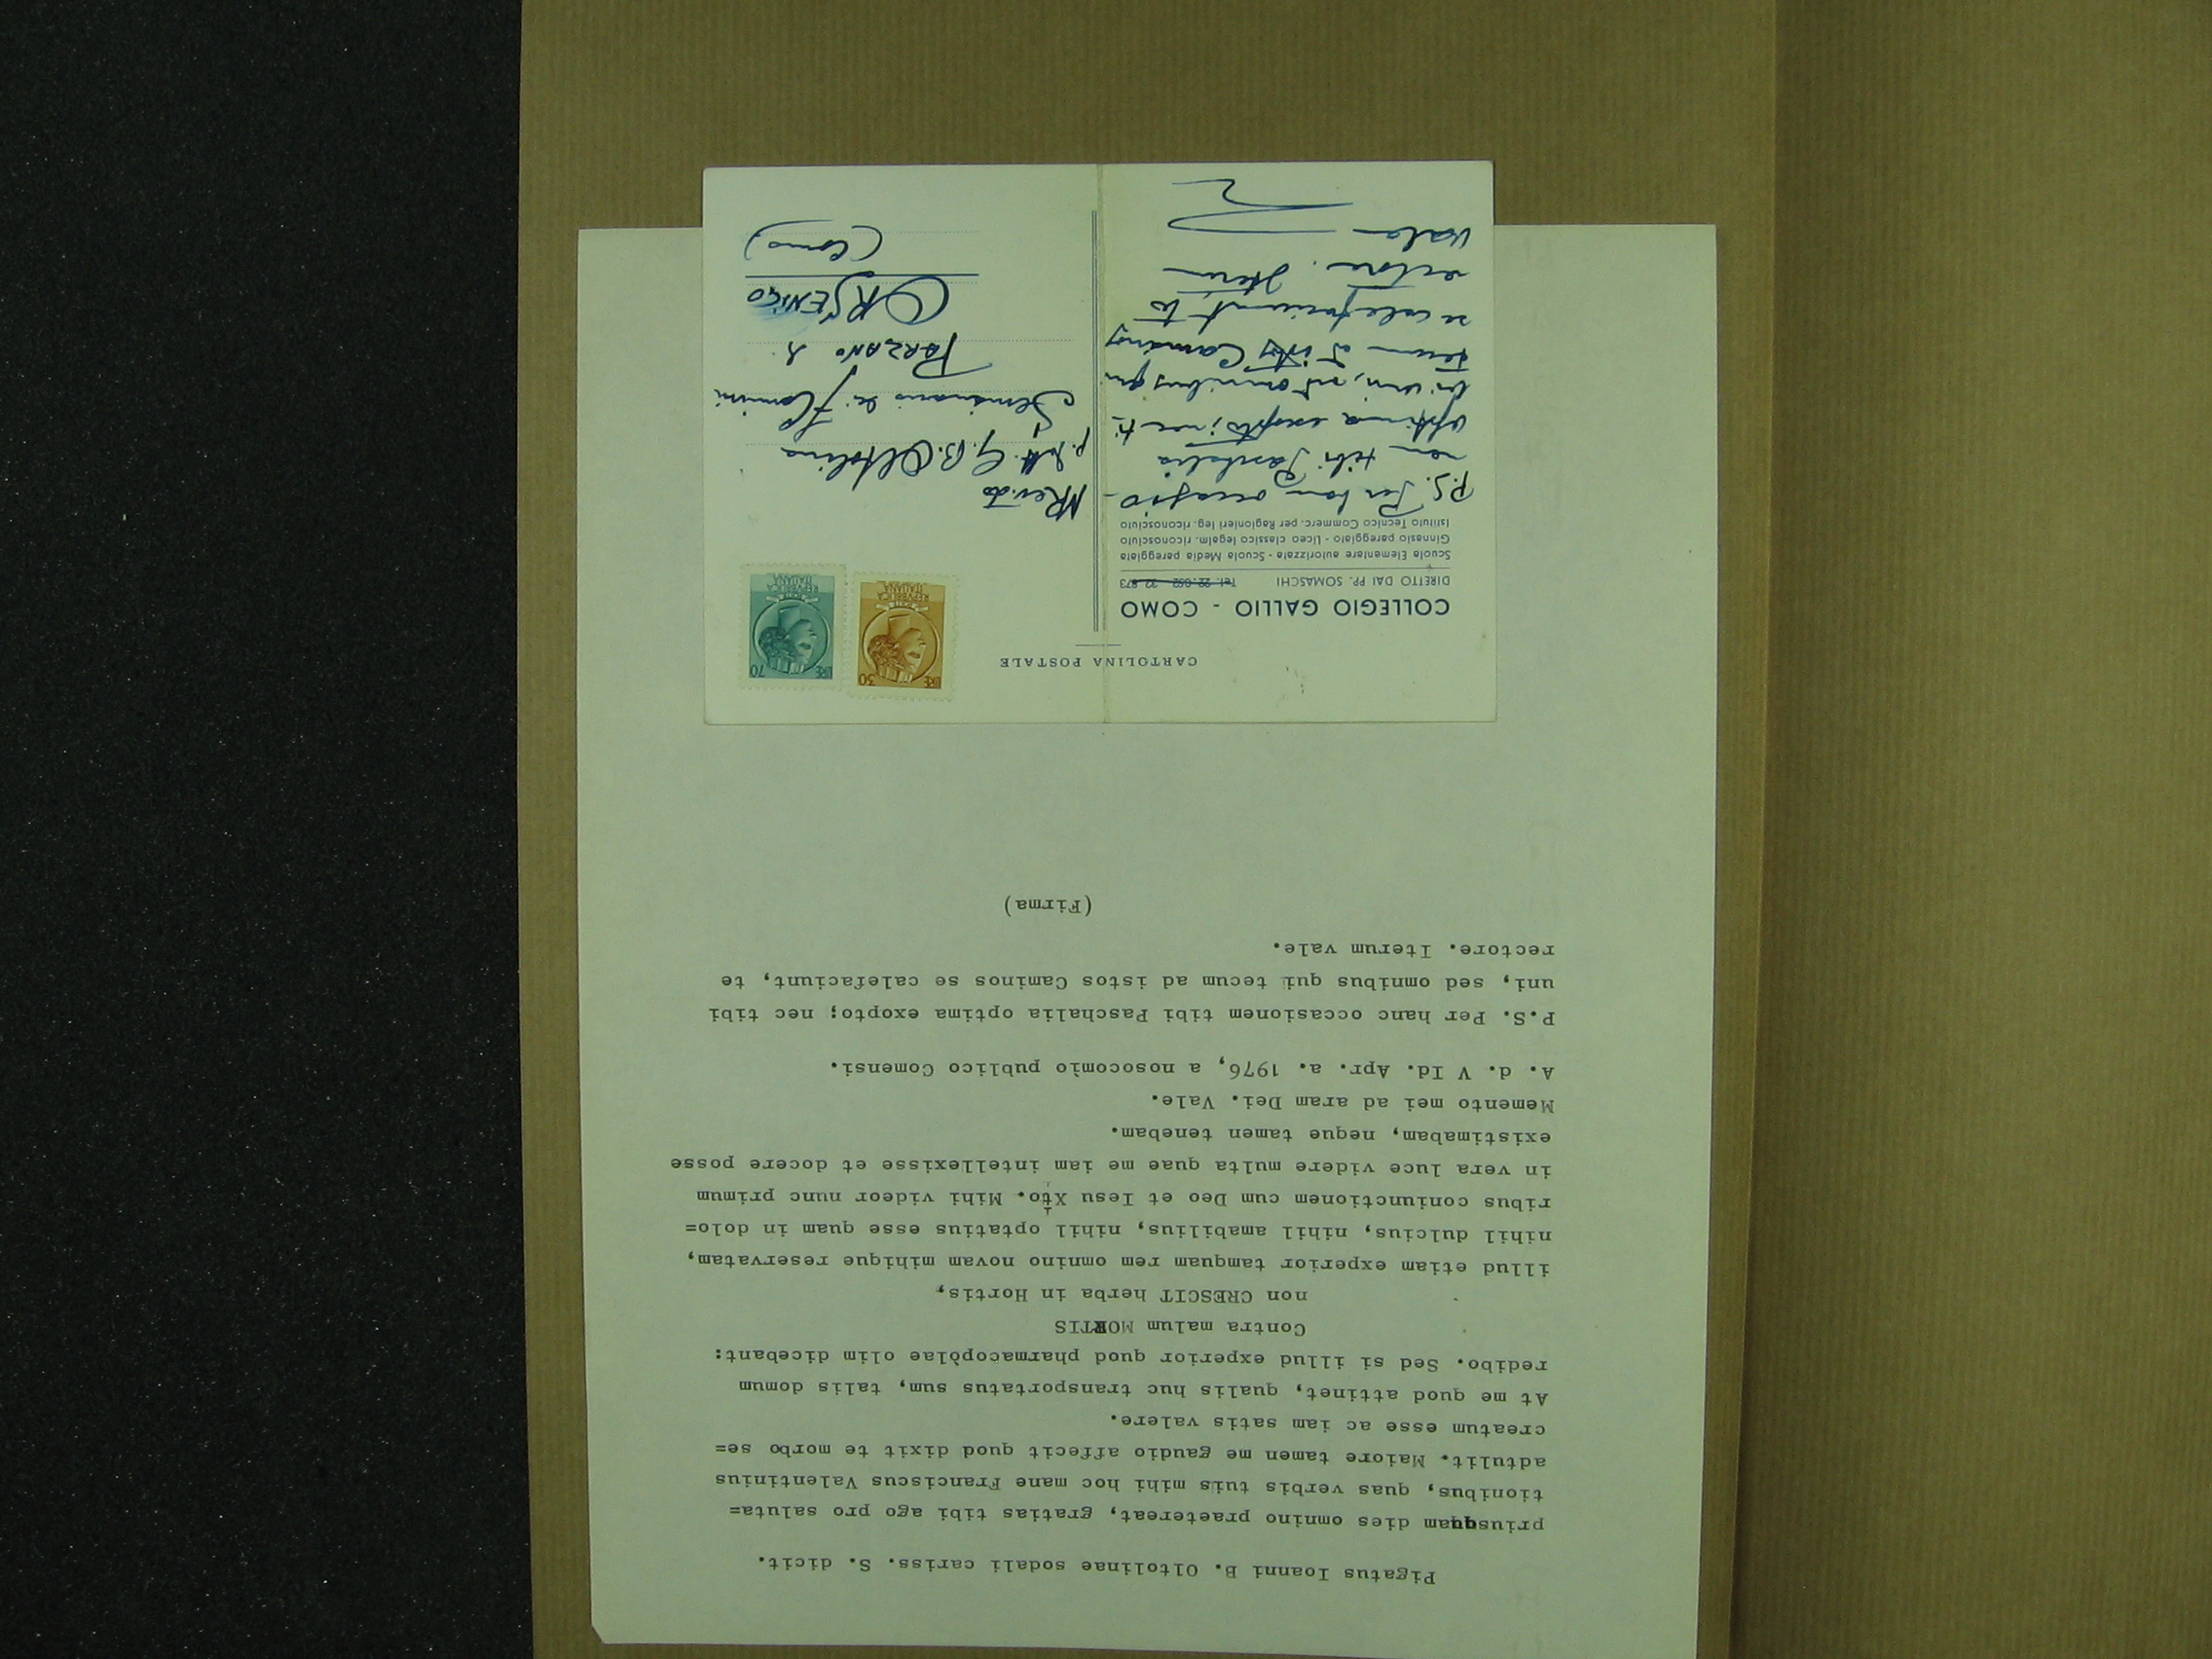 Pigatus Ioanni B. Oltolinae sodali cariss. S. dicit.
priusquam dies omnino praetereat, gratias tibi ago pro saluta=
tionibus, quas verbis tuis mihi hoc mane Franciscus Valentinius
adtulit. Maiore tamen me gaudio affecit quod dixit te morbo se=
creatum esse ac iam satis valere.
At me quod attinet, qualis huc transportatus sum, talis domum
redibo. Sed si illud experior quod pharmacopòlae olim dicebant:
Contra malum MORTIS
non CRESCIT herba in Hortis,
illud etiam experior tamquam rem omnino novam mihique reservatam,
nihil dulcius, nihil amabilius, nihil optatius esse quam in dolo=
ribus coniunctionem cum Deo et Iesu Xto. Mihi videor nunc primum
in vera luce videre multa quae me iam intellexisse et docere posse
existimabam, neque tamen tenebam.
Memento mei ad aram Dei. Vale.
A. d. V Id. Apr. a. 1976, a nosocomio publico Comensi.
P.S. Per hanc occasionem tibi Paschalia optima exopto; nec tibi
uni, sed omnibus qui tecum ad istos Caminos se calefaciunt, te
rectore. Iterum vale.
(Firma)
CARTOLINA POSTALE
COLLEGIO GALLIO - COMO
DIRETTO DAI PP. SOMASCHI Tel. 22.062 - 32 873
Scuola Elementare autorizzata - Scuola Media pareggiata
Ginnasio pareggiato - Liceo classico legalm. riconosciuto
Istituto Tecnico Commerc. per Ragionieri leg. riconosciuto
P.S. Per hanc occasio-
nem tibi Paschalia
optima exopto; nec ti-
bi uni, sed omnibus qui
tecum ad istos Caminos
se calefaciunt te
rectore. Iterum
vale
LIRE 30
REPVBBLICA
ITALIANA
LIRE 70
REPVBBLICA
ITALIANA
MRev.do
p. Dott. G. B. Oltolina
Seminario dei Camini
PARZANO di
ORSENIGO
(Como)